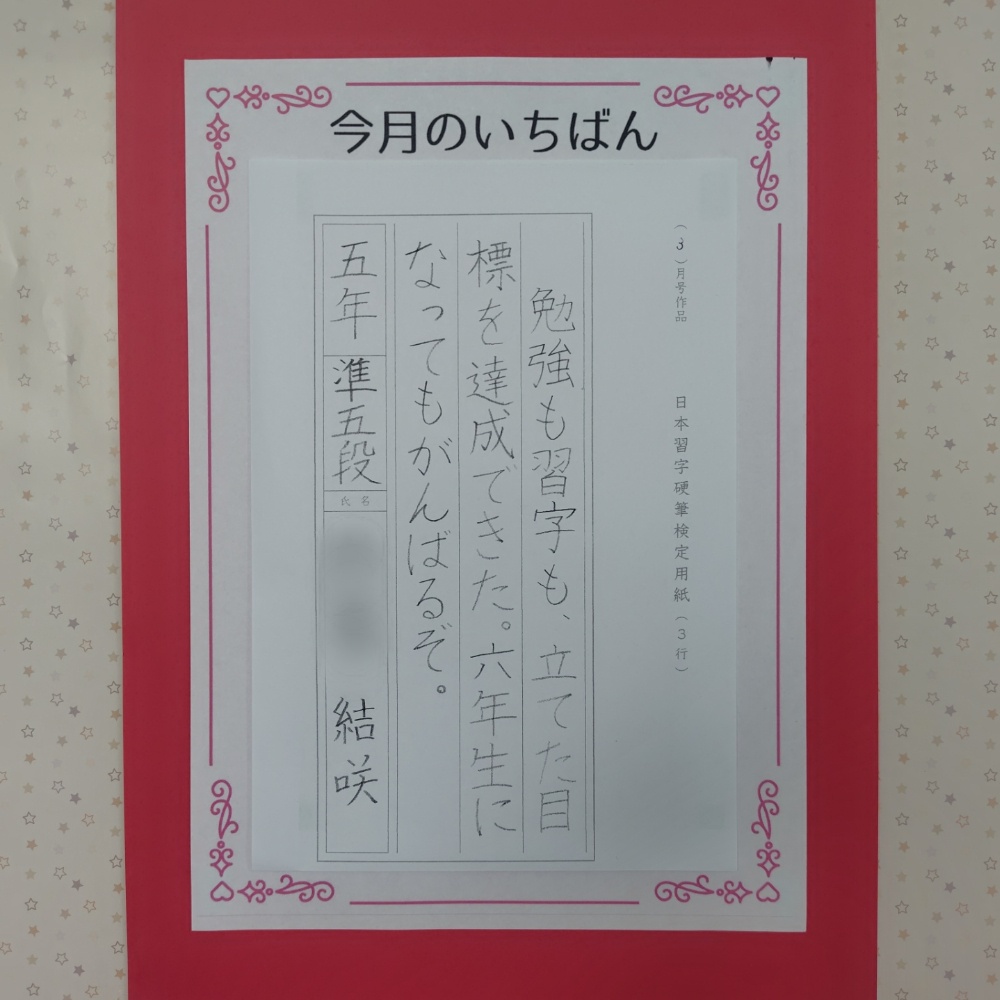 今月のいちばん
(3)月号作品 日本習字硬筆検定用紙(3行)
勉強も習字も、立てた目
標を達成できた。六年生に
なってもがんばるぞ。
五年 準五段 氏名 結咲